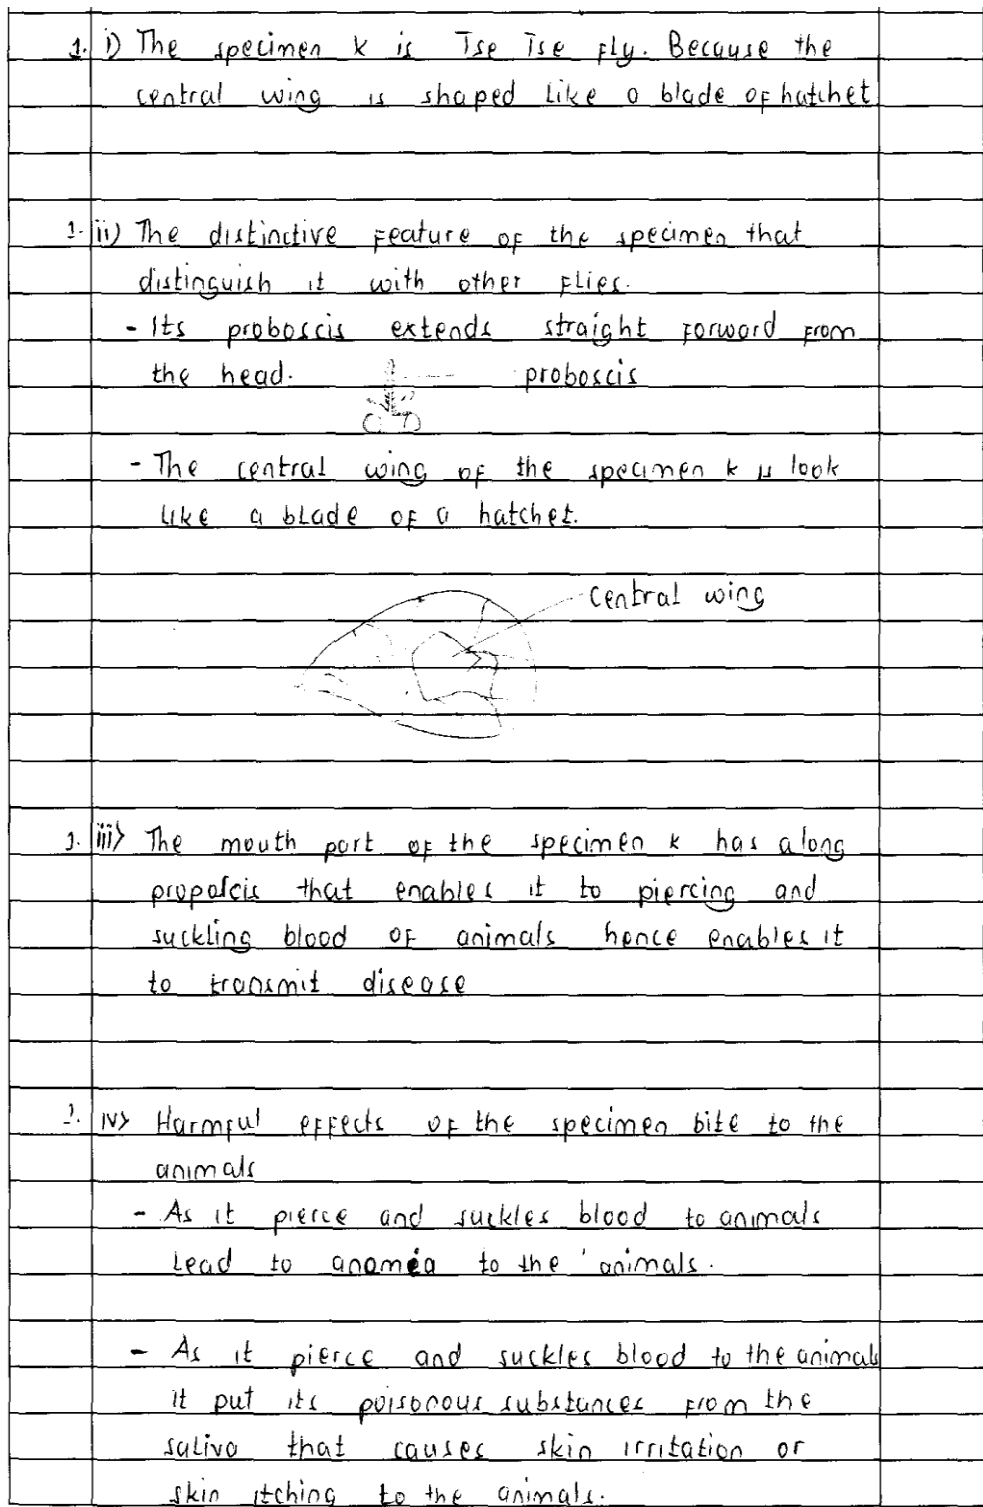 1. i) The specimen K is Tse Tse Fly. Because the
central wing is shaped like a blade of hatchet
1. ii) The distinctive feature of the specimen that
distinguish it with other flies.
- Its proboscis extends straight forward from
the head. proboscis
- The central wing of the specimen k is look
like a blade of a hatchet.
central wing
1. iii) The mouth part of the specimen k has a long
proposcis that enables it to piercing and
suckling blood of animals hence enables it
to transmit disease
1. iv) Harmful effects of the specimen bite to the
animals
- As it pierce and suckles blood to animals
lead to anomia to the animals.
- As it pierce and suckles blood to the animals
it put its poisonous substances from the
saliva that causes skin irritation or
skin itching to the animals.